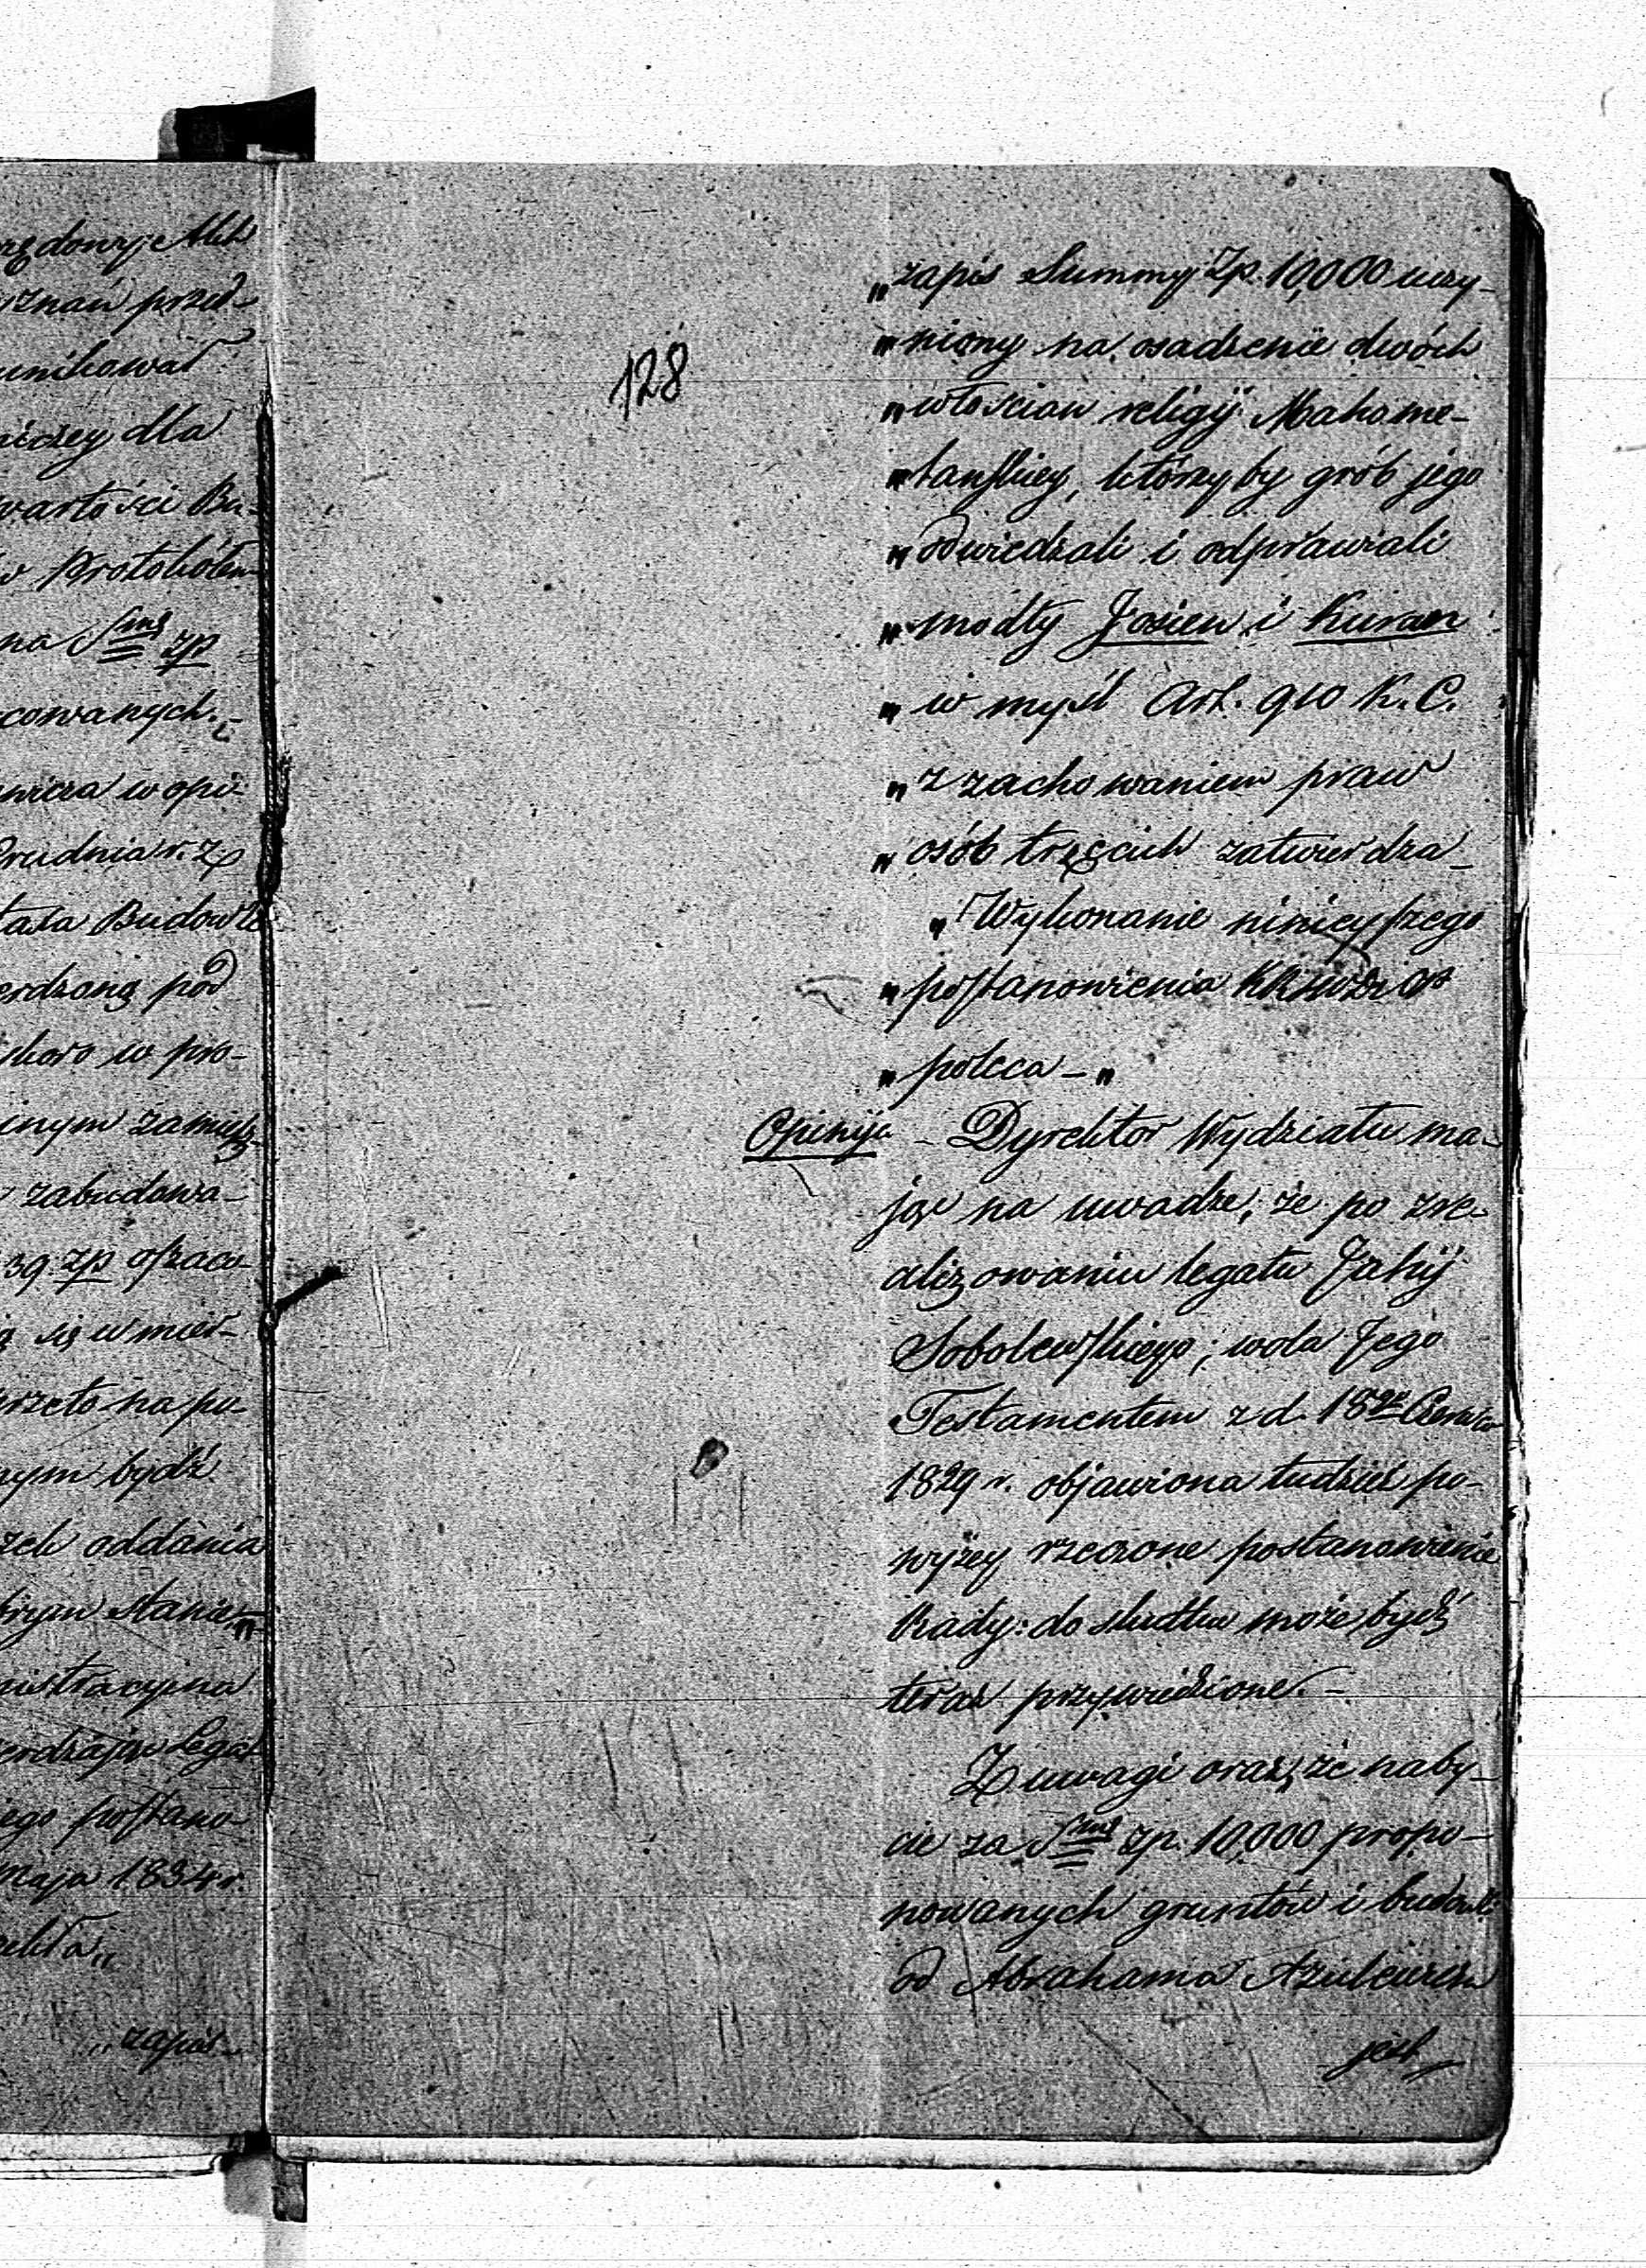 rędowyje Akt
uznań przed-
unikował
niczey dla
wartości Bu-
w Protokóten
na Smę zp
cowanych. i
wicza w opi-
Grudnia r. z
tała Budowle
erdzoną pod
skoro w pro-
innym zamiesz-
zabudowa-
39 zp oszaco-
ą się w mier-
przeto na pu-
nym bydź
zch oddania
brym stanie„
nistracyjna
erdzając Legat
ego postano-
Maja 1834 r.
ekła„
„zapis-
128
„zapis Summy Zp. 10,000 uczy-
„niony na osadzenie dwóch
„włościan religij Mahome-
„tanskiey, którzyby grób jego
„odwiedzali i odprawiali
„modły Jasien i Kuran
„w myśl Art. 910 K. C.
„z zachowaniem praw
„osób trzęcich zatwierdza_
„Wykonanie ninieyszego
„postanowienia
„poleca_„
Opinija - Dyrektor Wydziału ma-
jąc na uwadze, że po zre-
alizowaniu legatu Jakij
Sobolewskiego; wola Jego
Testamentem z d. 18go Czerwca
1829 r. objawiona tudzież po-
wyżey rzeczone postanowienie
Rady: do skutku może bydź
teraz przywiedzione. -
Z uwagi oraz, że naby-
cie za Smę zp. 10,000 propo-
nowanych gruntów i budowli
od Abrahama Azulewicza
jest